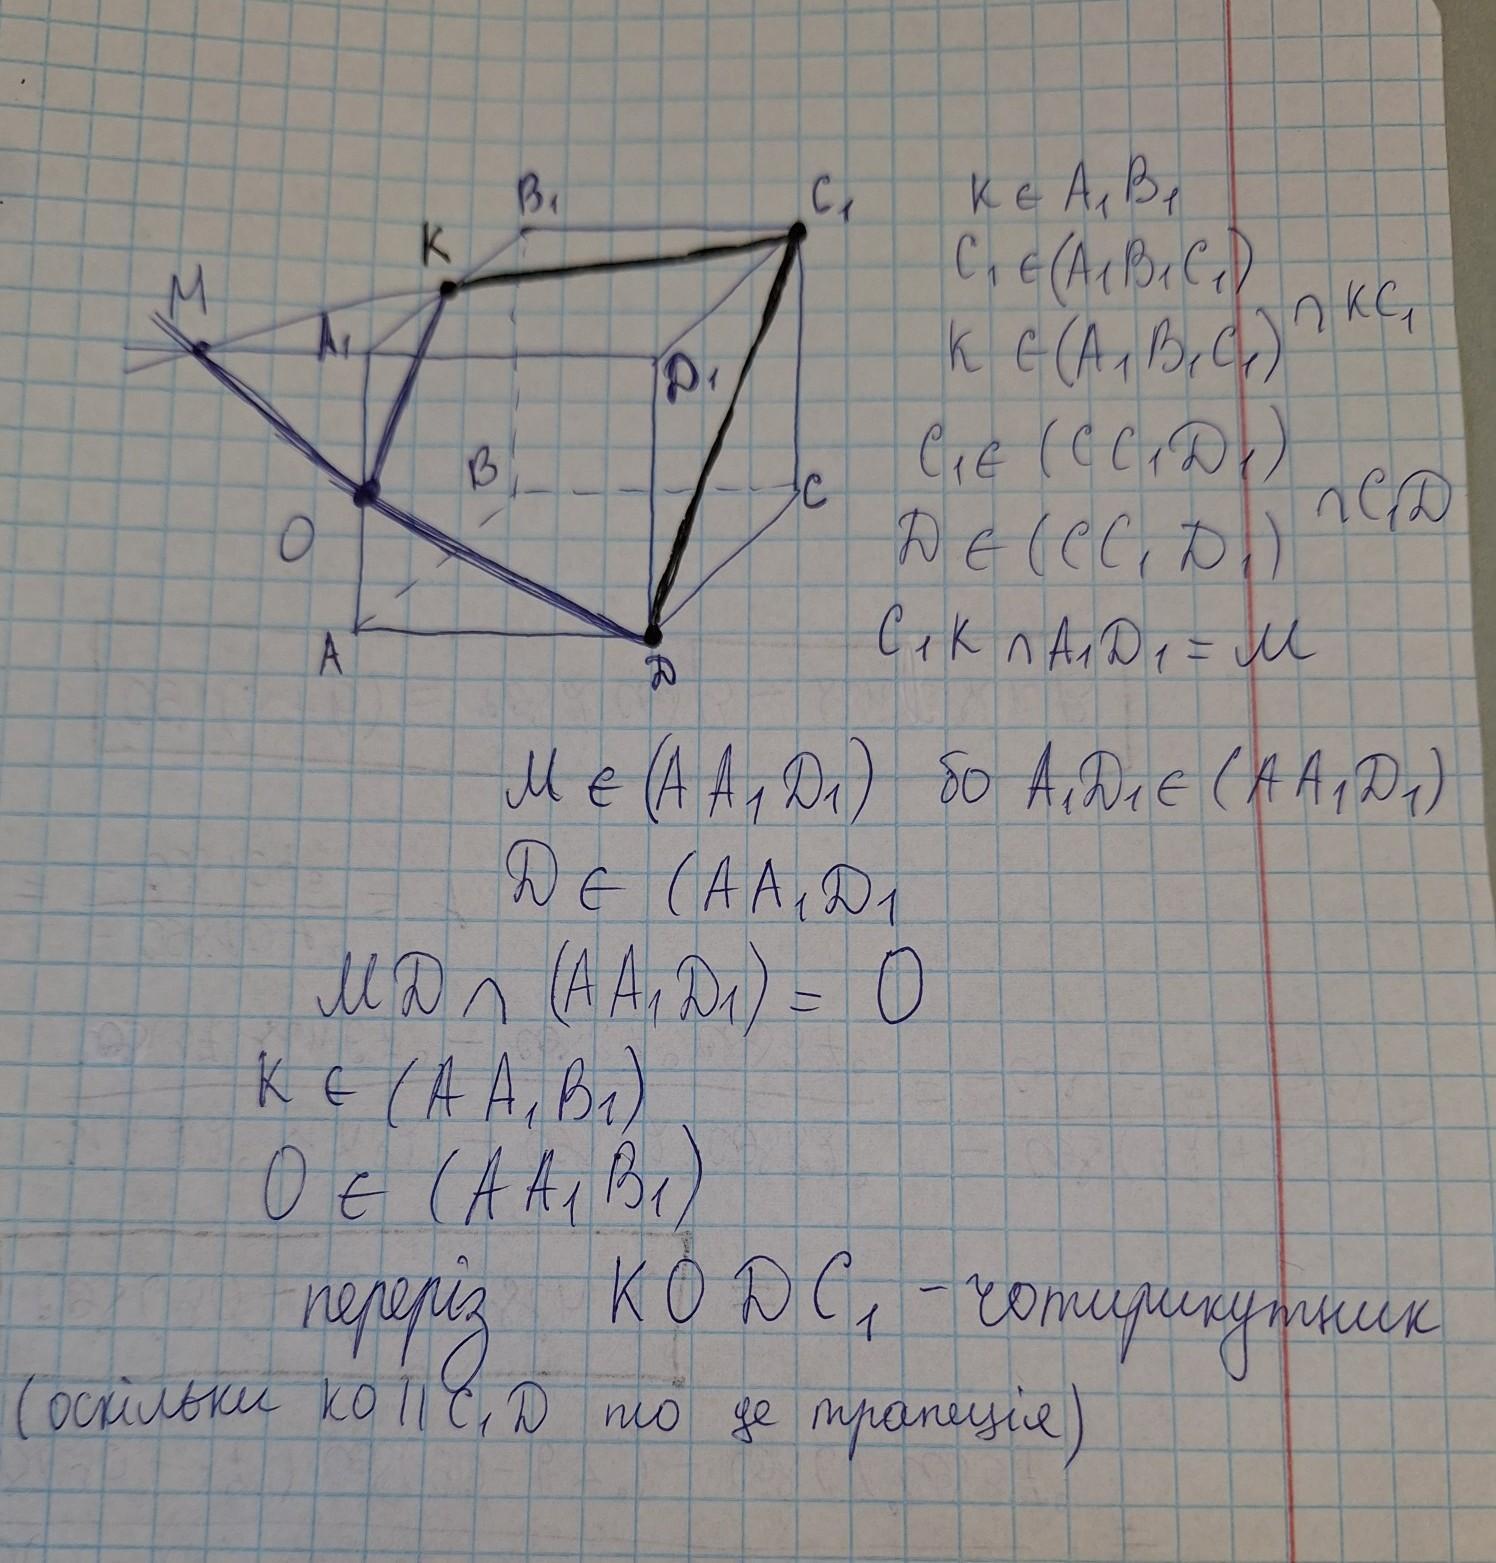 B₁
C₁
K
M
A₁
D₁
B
C
O
A
D
K ∈ A₁B₁
C₁ ∈ (A₁B₁C₁)
K ∈ (A₁B₁C₁) ∩ KC₁
C₁ ∈ (CC₁D₁)
D ∈ (CC₁D₁) ∩ C₁D
C₁K ∩ A₁D₁ = M
M ∈ (AA₁D₁) бо A₁D₁ ∈ (AA₁D₁)
D ∈ (AA₁D₁
MD ∩ (AA₁D₁) = O
K ∈ (AA₁B₁)
O ∈ (AA₁B₁)
переріз KODC₁ - чотирикутник
(оскільки KO || C₁D то це трапеція)